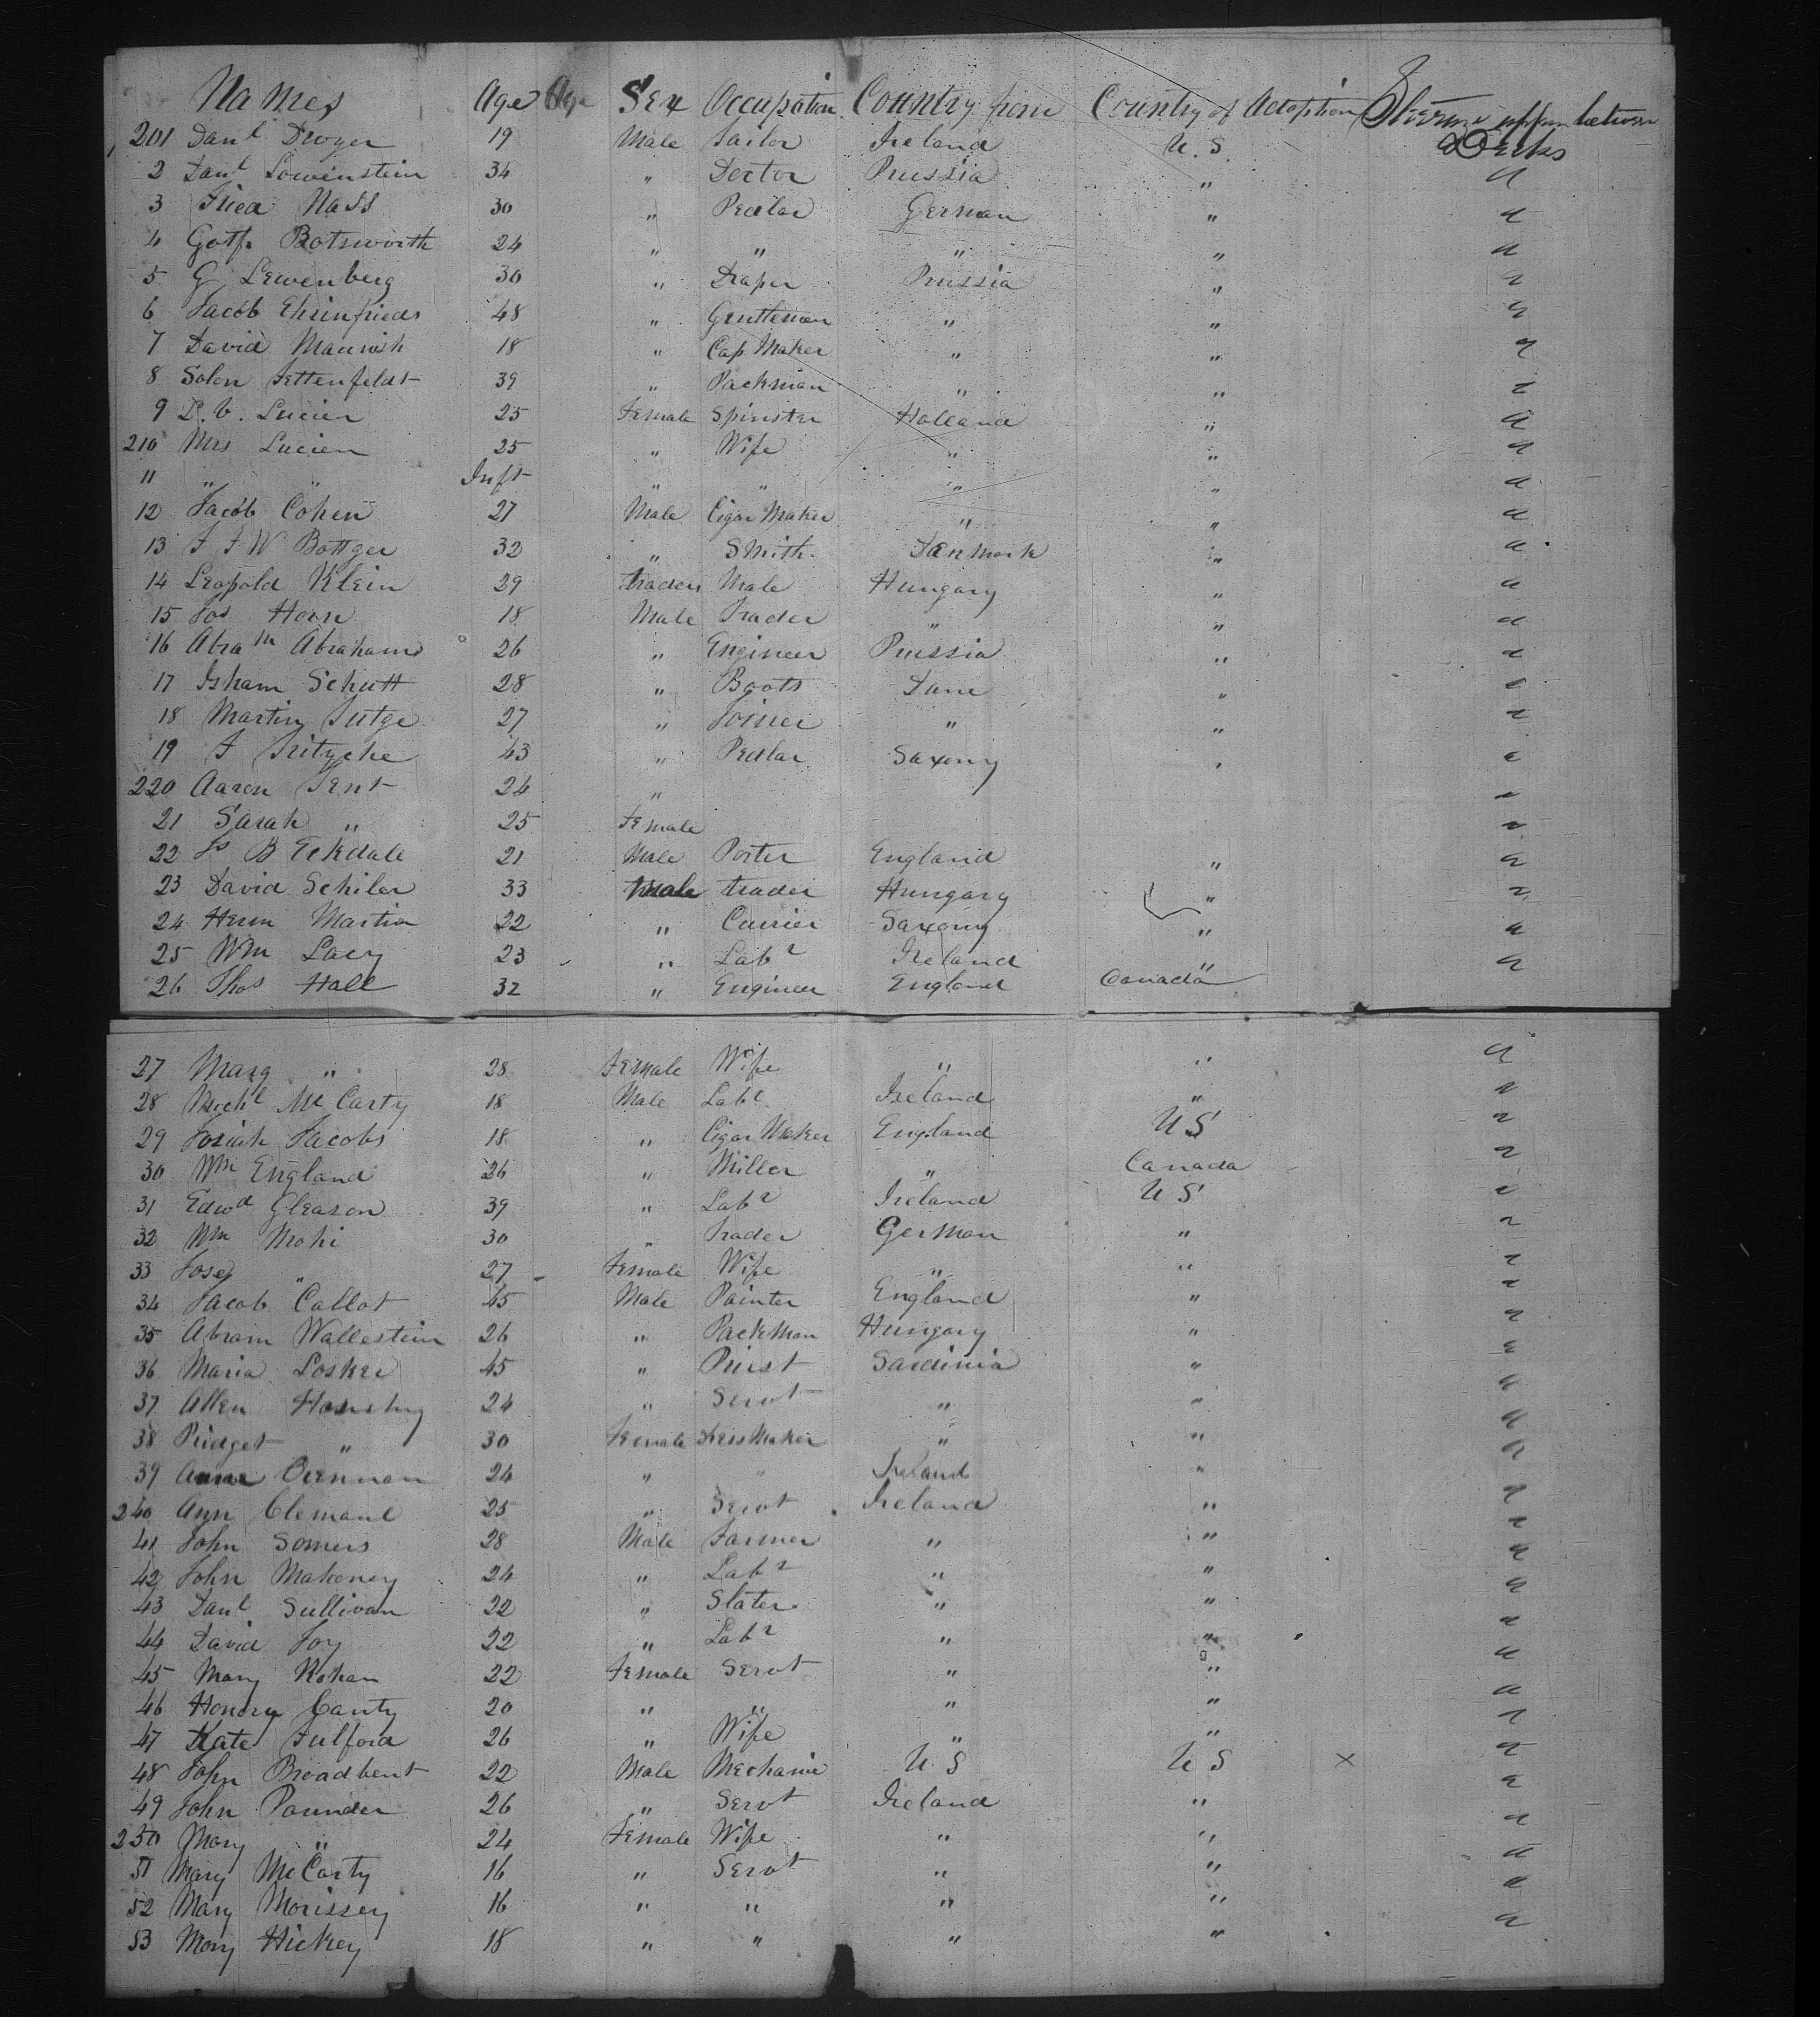 Names Age Age Sex Occupation Country from Country of Adoption Steerage upper between Decks
201 Danl Droyer 19 Male Sailor Ireland U.S.
2 Danl Lowenstein 34 " Doctor Prussia " a
3 Fried Nass 30 " Pedlar German " a
4 Gotf Botsworth 24 " " " " a
5 G Lewenberg 30 " Draper Prussia " a
6 Jacob Ehrinfrieds 48 " Gentleman " " a
7 David Mannish 18 " Cap Maker " " a
8 Solon Fettenfeldt 39 " Packman " " a
9 L. V. Lucien 25 Female Spinster Holland " a
210 Mrs Lucien 25 " Wife " " a
11 " " Inft " " " " a
12 Jacob Cohen 27 Male Cigar Maker " " a
13 F F W Bottger 32 " Smith Denmark " a
14 Leopold Klein 29 traders Male Hungary " a
15 Jos Horn 18 Male Trader " " a
16 Abram Abrahams 26 " Engineer Prussia " a
17 Isham Schutt 28 " Boots Dane " a
18 Martin Jutge 27 " Joiner " " a
19 F Fritzche 43 " Pedlar Saxony " a
220 Aaron Tent 24 " a
21 Sarah " 25 Female a
22 Js B Eckdale 21 Male Porter England " a
23 David Schiler 33 Male trader Hungary " a
24 Herm Martin 22 " Currier Saxony " a
25 Wm Lacy 23 " Labr Ireland " a
26 Thos Hall 32 " Engineer England Canada
27 Mary " 28 Female Wife " " a
28 Michl McCarty 18 Male Labr Ireland " a
29 Josiah Jacobs 18 " Cigar Maker England U S a
30 Wm England 26 " Miller " Canada a
31 Edwd Gleason 39 " Labr Ireland U S a
32 Wm Mohi 30 " Trader German " a
33 Josep " 27 Female Wife " " a
34 Jacob Callot 45 Male Painter England " a
35 Abram Wallestein 26 " Packman Hungary " a
36 Maria Losker 45 " Priest Sardinia " a
37 Allen 24 " Servt " " a
38 Bridget " 30 Female Dress Maker " " a
39 Anne Brennan 24 " " Ireland " a
240 Ann Clemane 25 " Servt Ireland " a
41 John Somers 28 Male Farmer " " a
42 John Mahoney 24 " Labr " " a
43 Danl Sullivan 22 " Slater " " a
44 David Joy 22 " Labr " " a
45 Mary Rohan 22 Female Servt " " a
46 Honora Canty 20 " " " " a
47 Kate Fulford 26 " Wife " " a
48 John Broadbent 22 Male Mechanic U S U S × a
49 John Pounder 26 " Servt Ireland " a
250 Mary " 24 Female Wife " " a
51 Mary McCarty 16 " Servt " " a
52 Mary Morissey 16 " " " " a
53 Mary Hickey 18 " " " " a